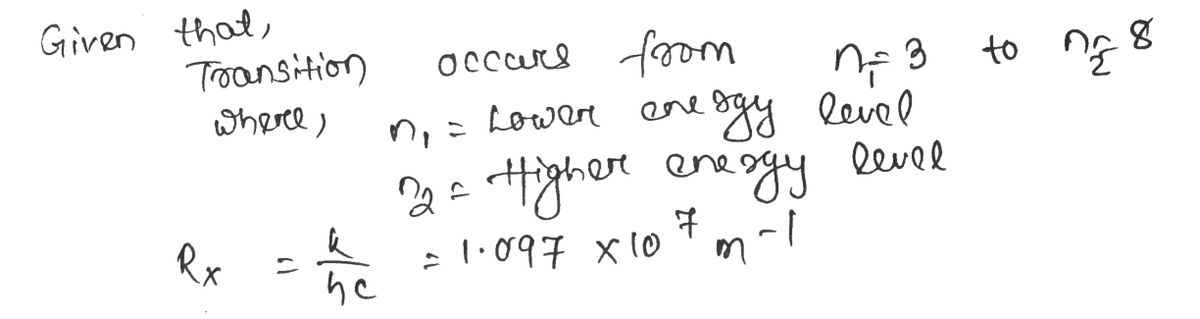 Given that,
Transition occurs from n₁ = 3 to n₂ = 8
where, n₁ = Lower energy level
n₂ = Higher energy level
Rx = k/hc = 1.097 × 10⁷ m⁻¹